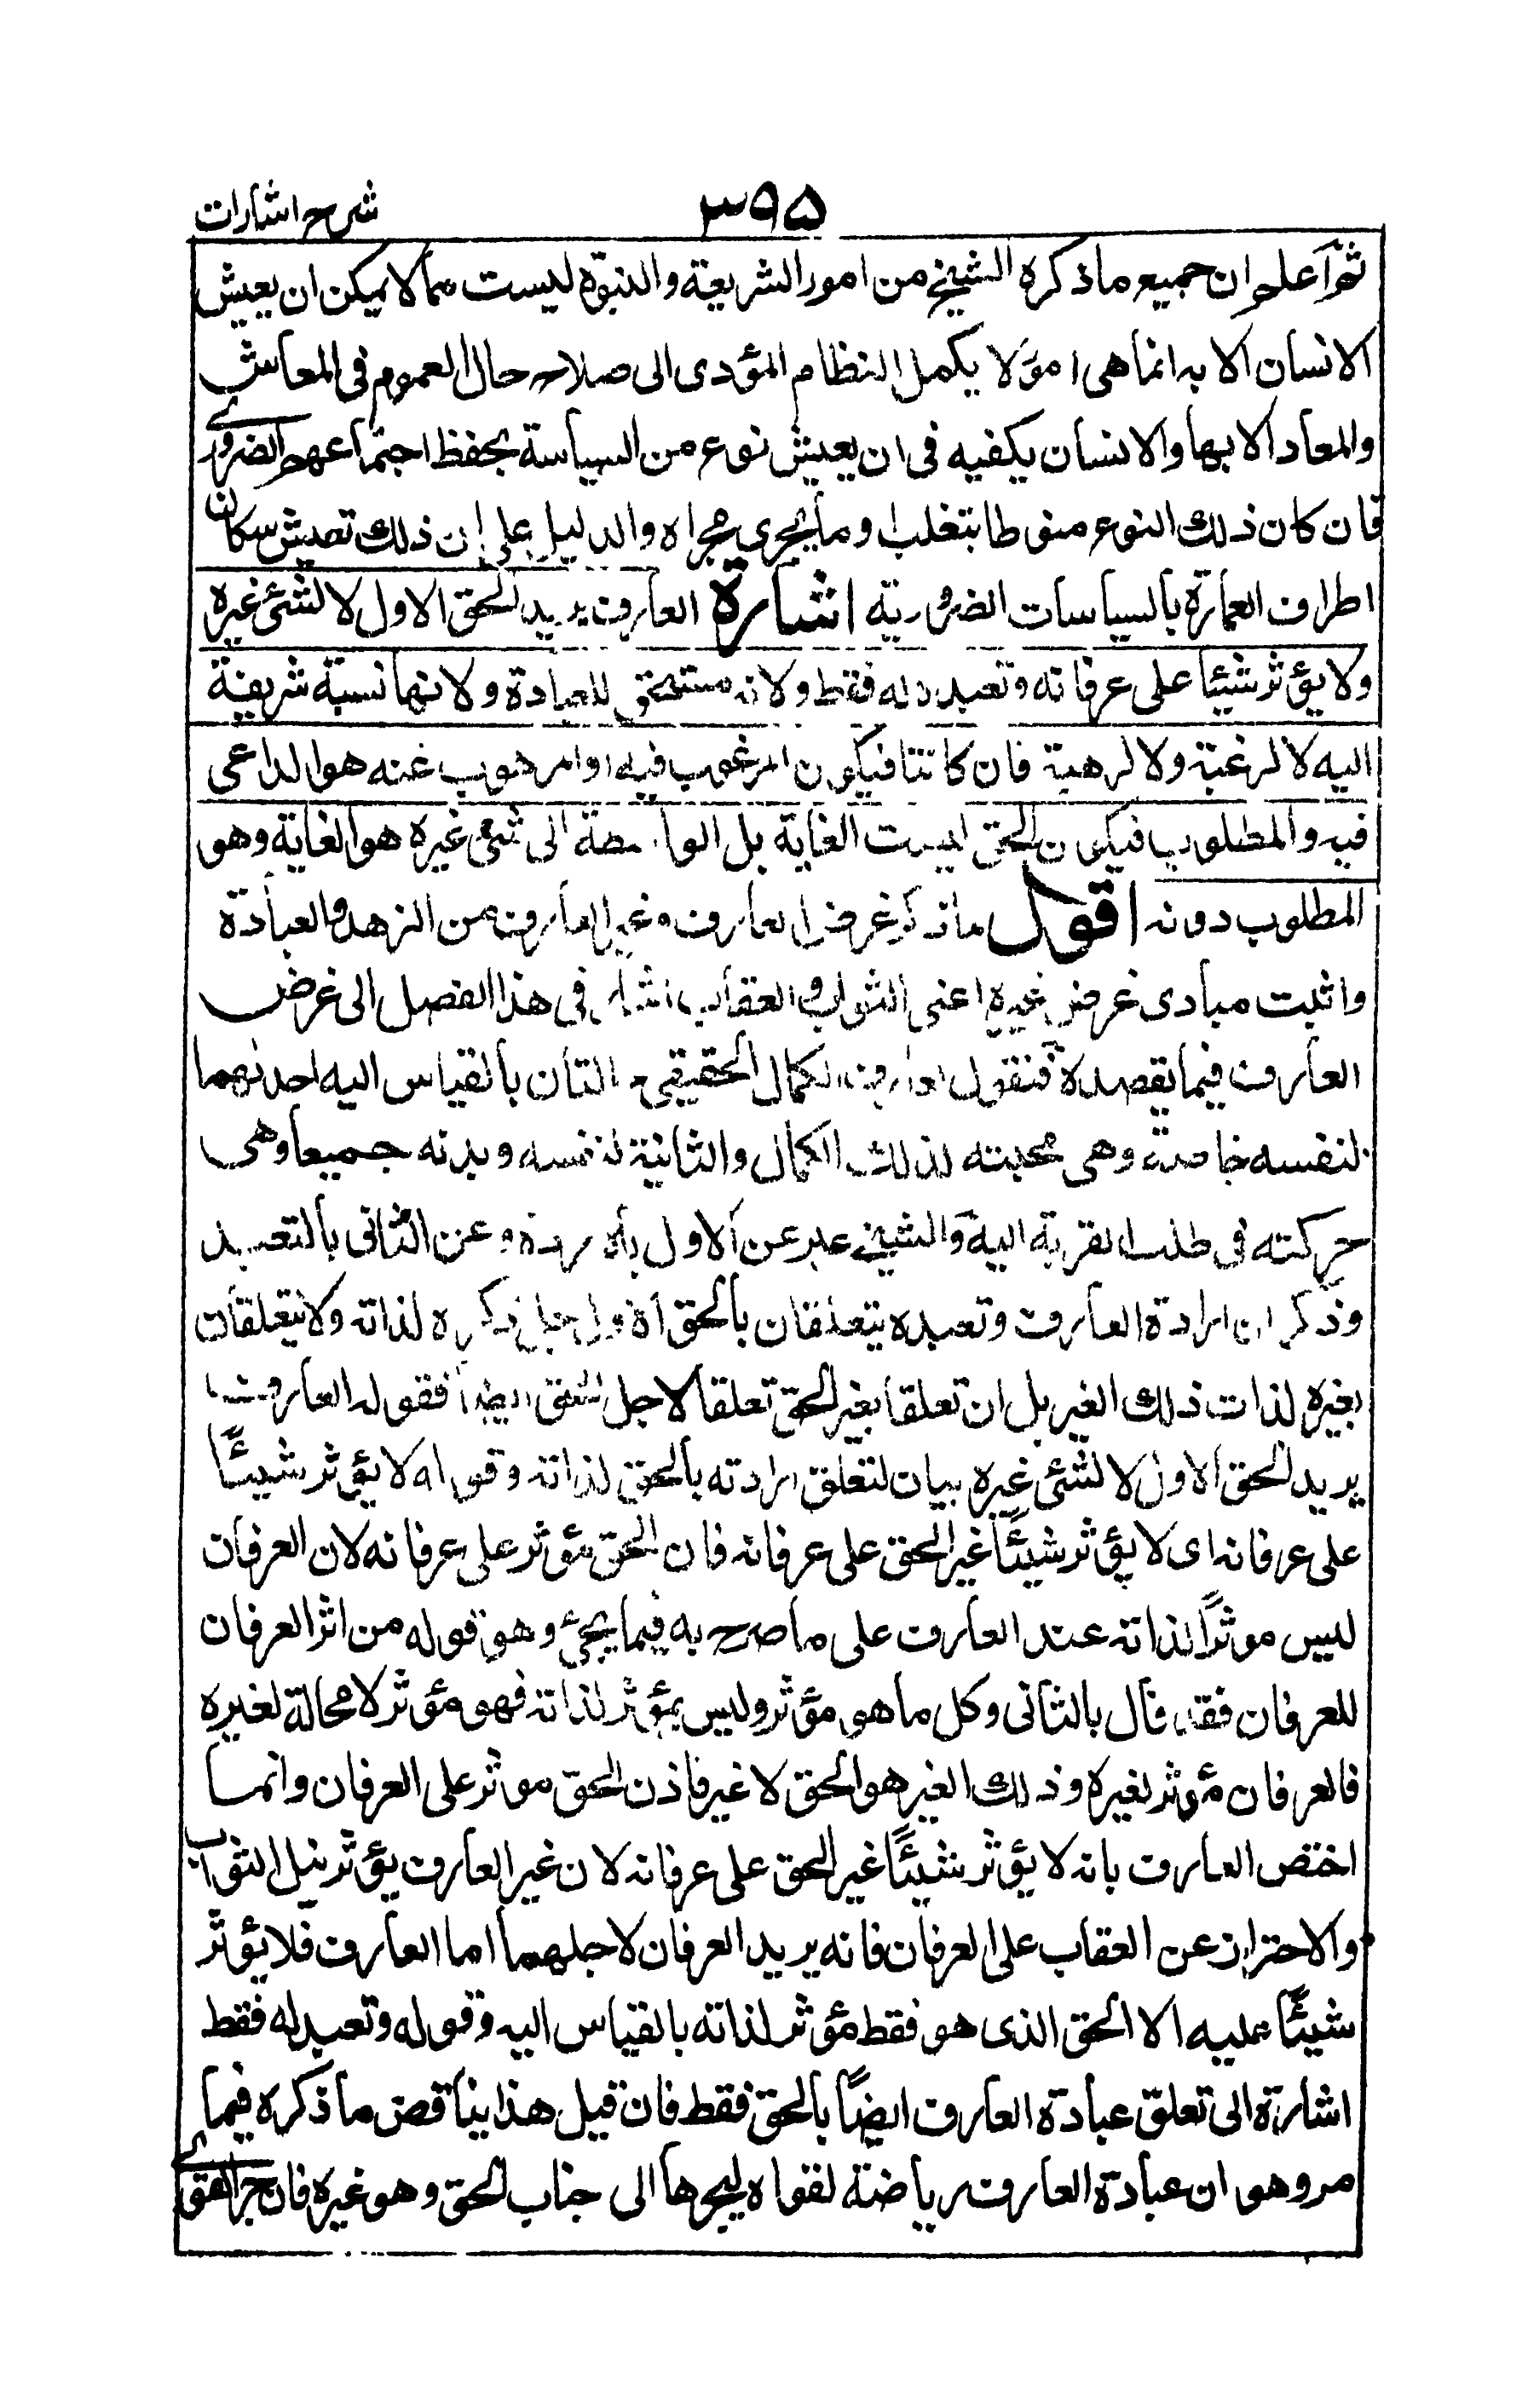 شرح اشارات
٣٩٥
ثم اعلم ان جميع ما ذكره الشيخ من امور الشريعة والنبوة ليست مما لا يمكن ان يعيش
الانسان الا به انما هى امور لا يكمل النظام المؤدى الى صلاح حال العموم فى المعاش
والمعاد الا بها والانسان يكفيه فى ان يعيش نوع من السياسة بحفظ اجتماعهم الضرورى
فان كان ذلك النوع منوطا بتغلب او ما يجرى مجراه والدليل على ان ذلك تعيش سكان
اطراف العمارة بالسياسات الضرورية اشارة العارف يريد الحق الاول لا لشئ غيره
ولا يؤثر شيئا على عرفانه وتعبده له فقط ولانه مستحق للعبادة ولانها نسبة شريفة
اليه لا لرغبة ولا لرهبة فان كانتا فيكون المرغوب فيه او المرهوب عنه هو الداعى
فيه والمطلوب فيكون الحق ليست الغاية بل الواسطة الى شئ غيره هو الغاية وهو
المطلوب دونه اقول لما ذكر غرض العارف وغير العارف من الزهد والعبادة
واثبت مبادى غرض غيره اعنى الثواب والعقاب اشار فى هذا الفصل الى غرض
العارف فيما يقصده فنقول لعارف الكمال الحقيقى حالتان بالقياس اليه احدٰيهما
لنفسه خاصة وهى محبته لذلك الكمال والثانية لنفسه وبدنه جميعا وهى
حركته فى طلب القربة اليه والشيخ عبر عن الاول بالارادة وعن الثانى بالتعبد
وذكر ان ارادة العارف وتعبده يتعلقان بالحق الاول جل ذكره لذاته ولا يتعلقان
بغيره لذات ذلك الغير بل ان تعلقا بغير الحق تعلقا لاجل الحق ايضا فقوله العارف
يريد الحق الاول لا لشئ غيره بيان لتعلق ارادته بالحق لذاته وقوله لا يؤثر شيئًا
على عرفانه اى لا يؤثر شيئًا غير الحق على عرفانه فان الحق مؤثر على عرفانه لان العرفان
ليس موثرًا لذاته عند العارف على ما صرح به فيما يجئ وهو قوله من اثر العرفان
للعرفان فقد قال بالثانى وكل ما هو مؤثر وليس بمؤثر لذاته فهو مؤثر لا محالة لغيره
فالعرفان مؤثر لغيره وذلك الغير هو الحق لا غير فاذن الحق موثر على العرفان وانما
اختص العارف بانه لا يؤثر شيئًا غير الحق على عرفانه لان غير العارف يؤثر نيل الثواب
والاحتراز عن العقاب على العرفان فانه يريد العرفان لاجلهما اما العارف فلا يؤثر
شيئًا عليه الا الحق الذى هو فقط مؤثر لذاته بالقياس اليه وقوله وتعبد له فقط
اشارة الى تعلق عبادة العارف ايضًا بالحق فقط فان قيل هذا يناقض ما ذكره فيما
مر وهو ان عبادة العارف رياضة لقواه ليجرها الى جناب الحق وهو غيره فان جر القوى